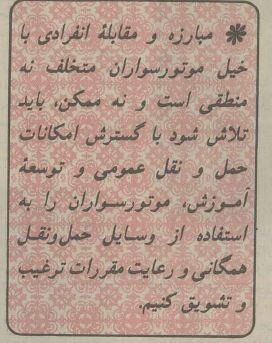 ✷ مبارزه و مقابلهٔ انفرادی با
خیل موتورسواران متخلف نه
منطقی است و نه ممکن، باید
تلاش شود با گسترش امکانات
حمل و نقل عمومی و توسعهٔ
آموزش، موتورسواران را به
استفاده از وسایل حمل‌ونقل
همگانی و رعایت مقررات ترغیب
و تشویق کنیم.